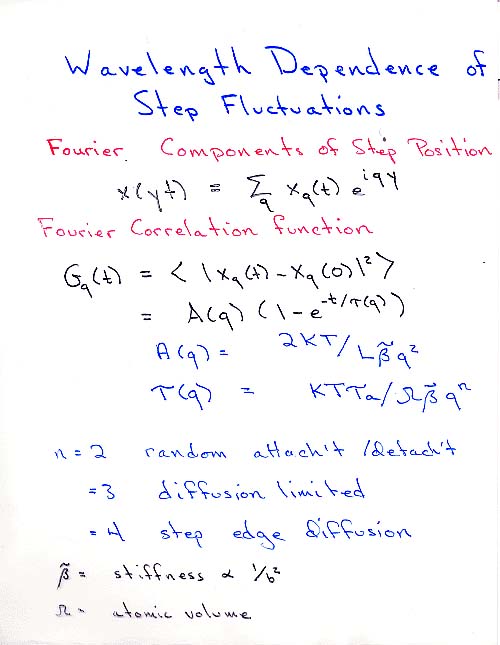 Wavelength Dependence of
Step Fluctuations
Fourier Components of Step Position
x(yt) = Σ_q x_q(t) e^{iqy}
Fourier Correlation function
G_q(t) = < |x_q(t) - x_q(0)|² >
= A(q) (1 - e^{-t/τ(q)})
A(q) = 2KT/Lβ̃q²
τ(q) = KTTa/Ωβ̃qⁿ
n = 2 random attach't /detach't
= 3 diffusion limited
= 4 step edge diffusion
β̃ = stiffness ∝ 1/b²
Ω = atomic volume